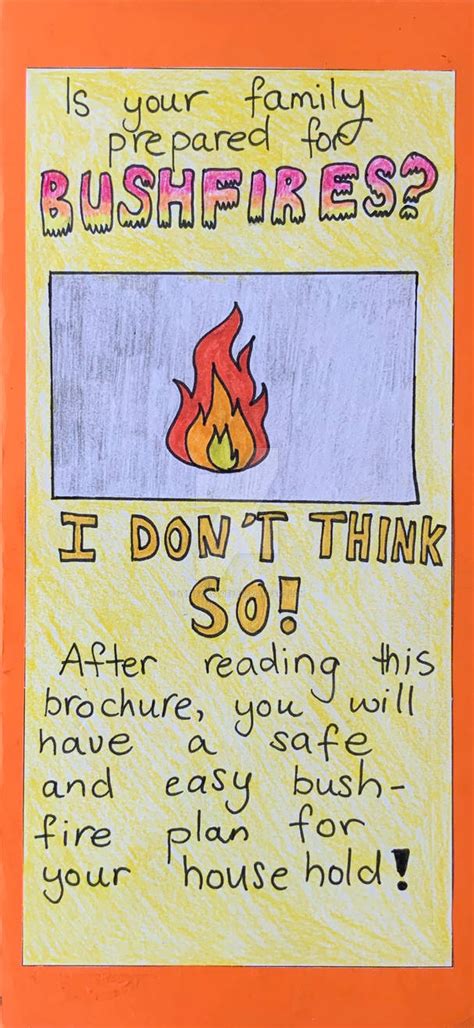 Is your family
prepared for
BUSHFIRES?
I DON'T THINK
SO!
After reading this
brochure, you will
have a safe
and easy bush-
fire plan for
your household!